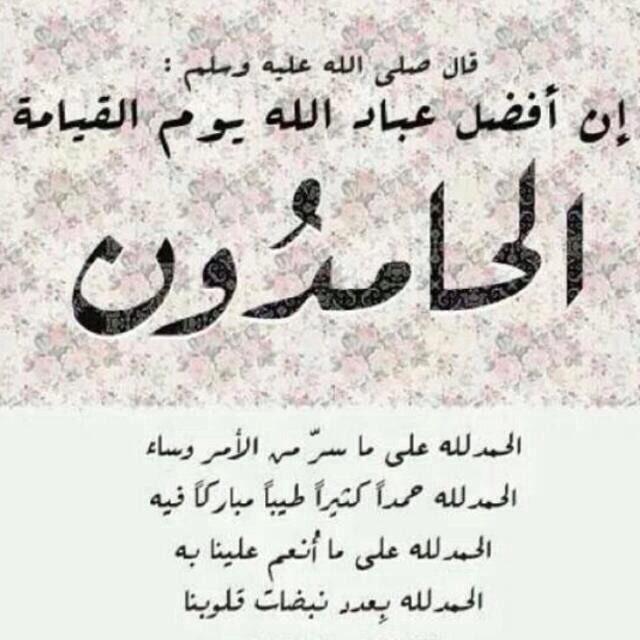 قال صلى الله عليه وسلم :
إن أفضل عباد الله يوم القيامة
الحامدُون
الحمدلله على ما سرّ من الأمر وساء
الحمدلله حمداً كثيراً طيباً مباركاً فيه
الحمدلله على ما أُنعم علينا به
الحمدلله بِعدد نبضات قلوبنا